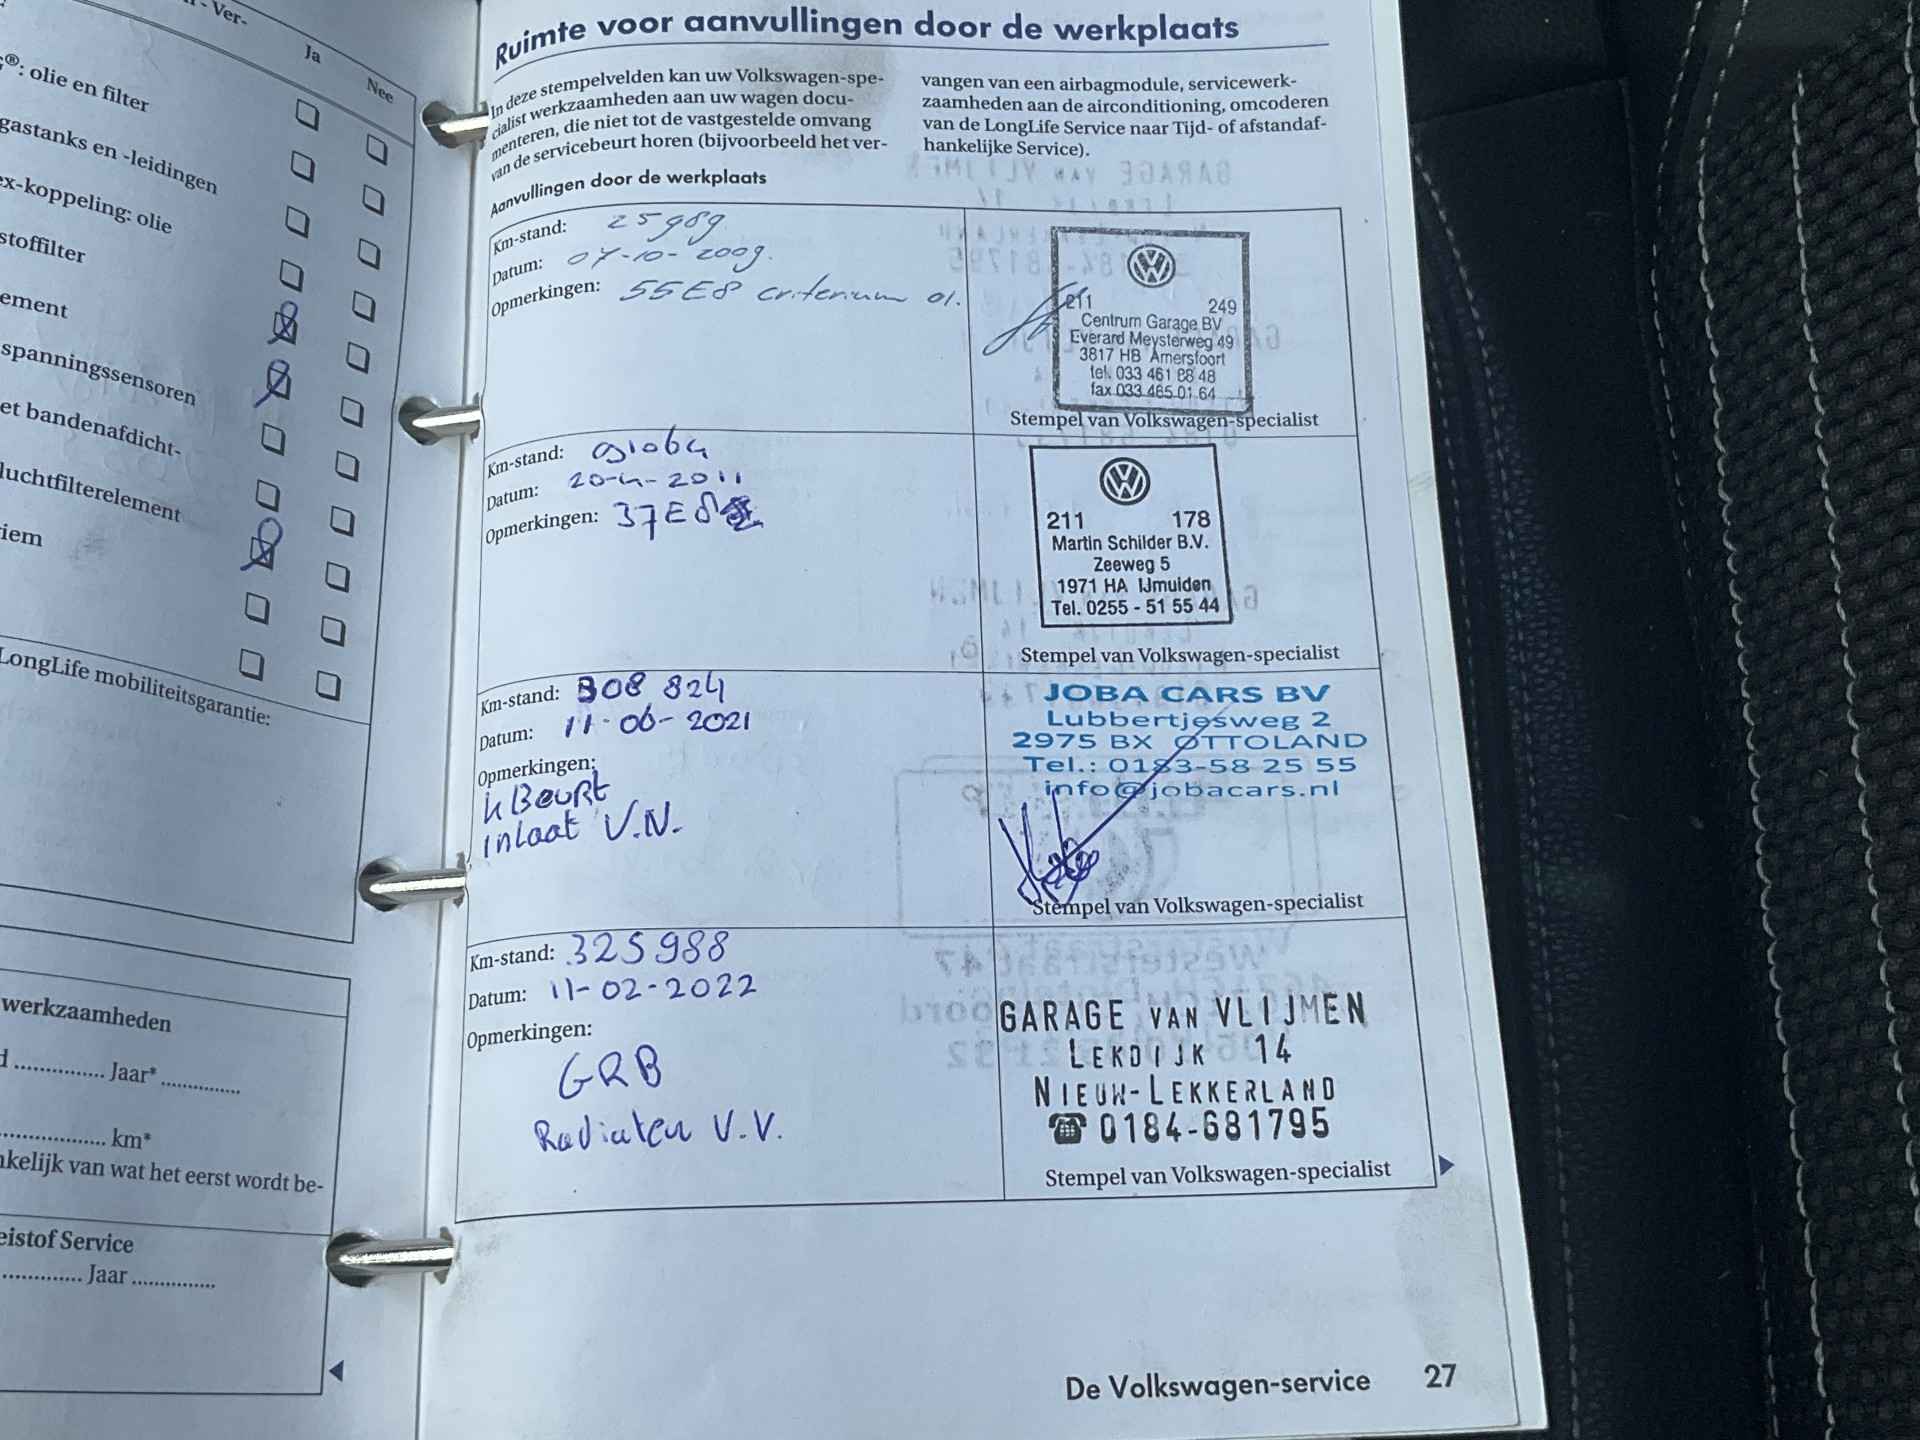 - Ver-
Ja
Nee
®: olie en filter
gastanks en -leidingen
ex-koppeling: olie
stoffilter
ement
spanningssensoren
et bandenafdicht-
luchtfilterelement
iem
LongLife mobiliteitsgarantie:
werkzaamheden
d ............... Jaar* ...............
.................... km*
nkelijk van wat het eerst wordt be-
eistof Service
............... Jaar ...............
Ruimte voor aanvullingen door de werkplaats
In deze stempelvelden kan uw Volkswagen-spe-
cialist werkzaamheden aan uw wagen docu-
menteren, die niet tot de vastgestelde omvang
van de servicebeurt horen (bijvoorbeeld het ver-
vangen van een airbagmodule, servicewerk-
zaamheden aan de airconditioning, omcoderen
van de LongLife Service naar Tijd- of afstandaf-
hankelijke Service).
Aanvullingen door de werkplaats
Km-stand: 25989
Datum: 07-10-2009.
Opmerkingen: 55E8 criterium 01.
211 249
Centrum Garage BV
Everard Meysterweg 49
3817 HB Amersfoort
tel. 033 461 88 48
fax 033 465 01 64
Stempel van Volkswagen-specialist
Km-stand: 91064
Datum: 20-4-2011
Opmerkingen: 37E8
211 178
Martin Schilder B.V.
Zeeweg 5
1971 HA IJmuiden
Tel. 0255 - 51 55 44
Stempel van Volkswagen-specialist
Km-stand: 308 824
Datum: 11-06-2021
Opmerkingen:
k Beurt
inlaat V.N.
JOBA CARS BV
Lubbertjesweg 2
2975 BX OTTOLAND
Tel.: 0183-58 25 55
info@jobacars.nl
Stempel van Volkswagen-specialist
Km-stand: 325988
Datum: 11-02-2022
Opmerkingen:
GRB
Radiateur V.V.
GARAGE VAN VLIJMEN
LEKDIJK 14
NIEUW-LEKKERLAND
☎ 0184-681795
Stempel van Volkswagen-specialist
De Volkswagen-service 27